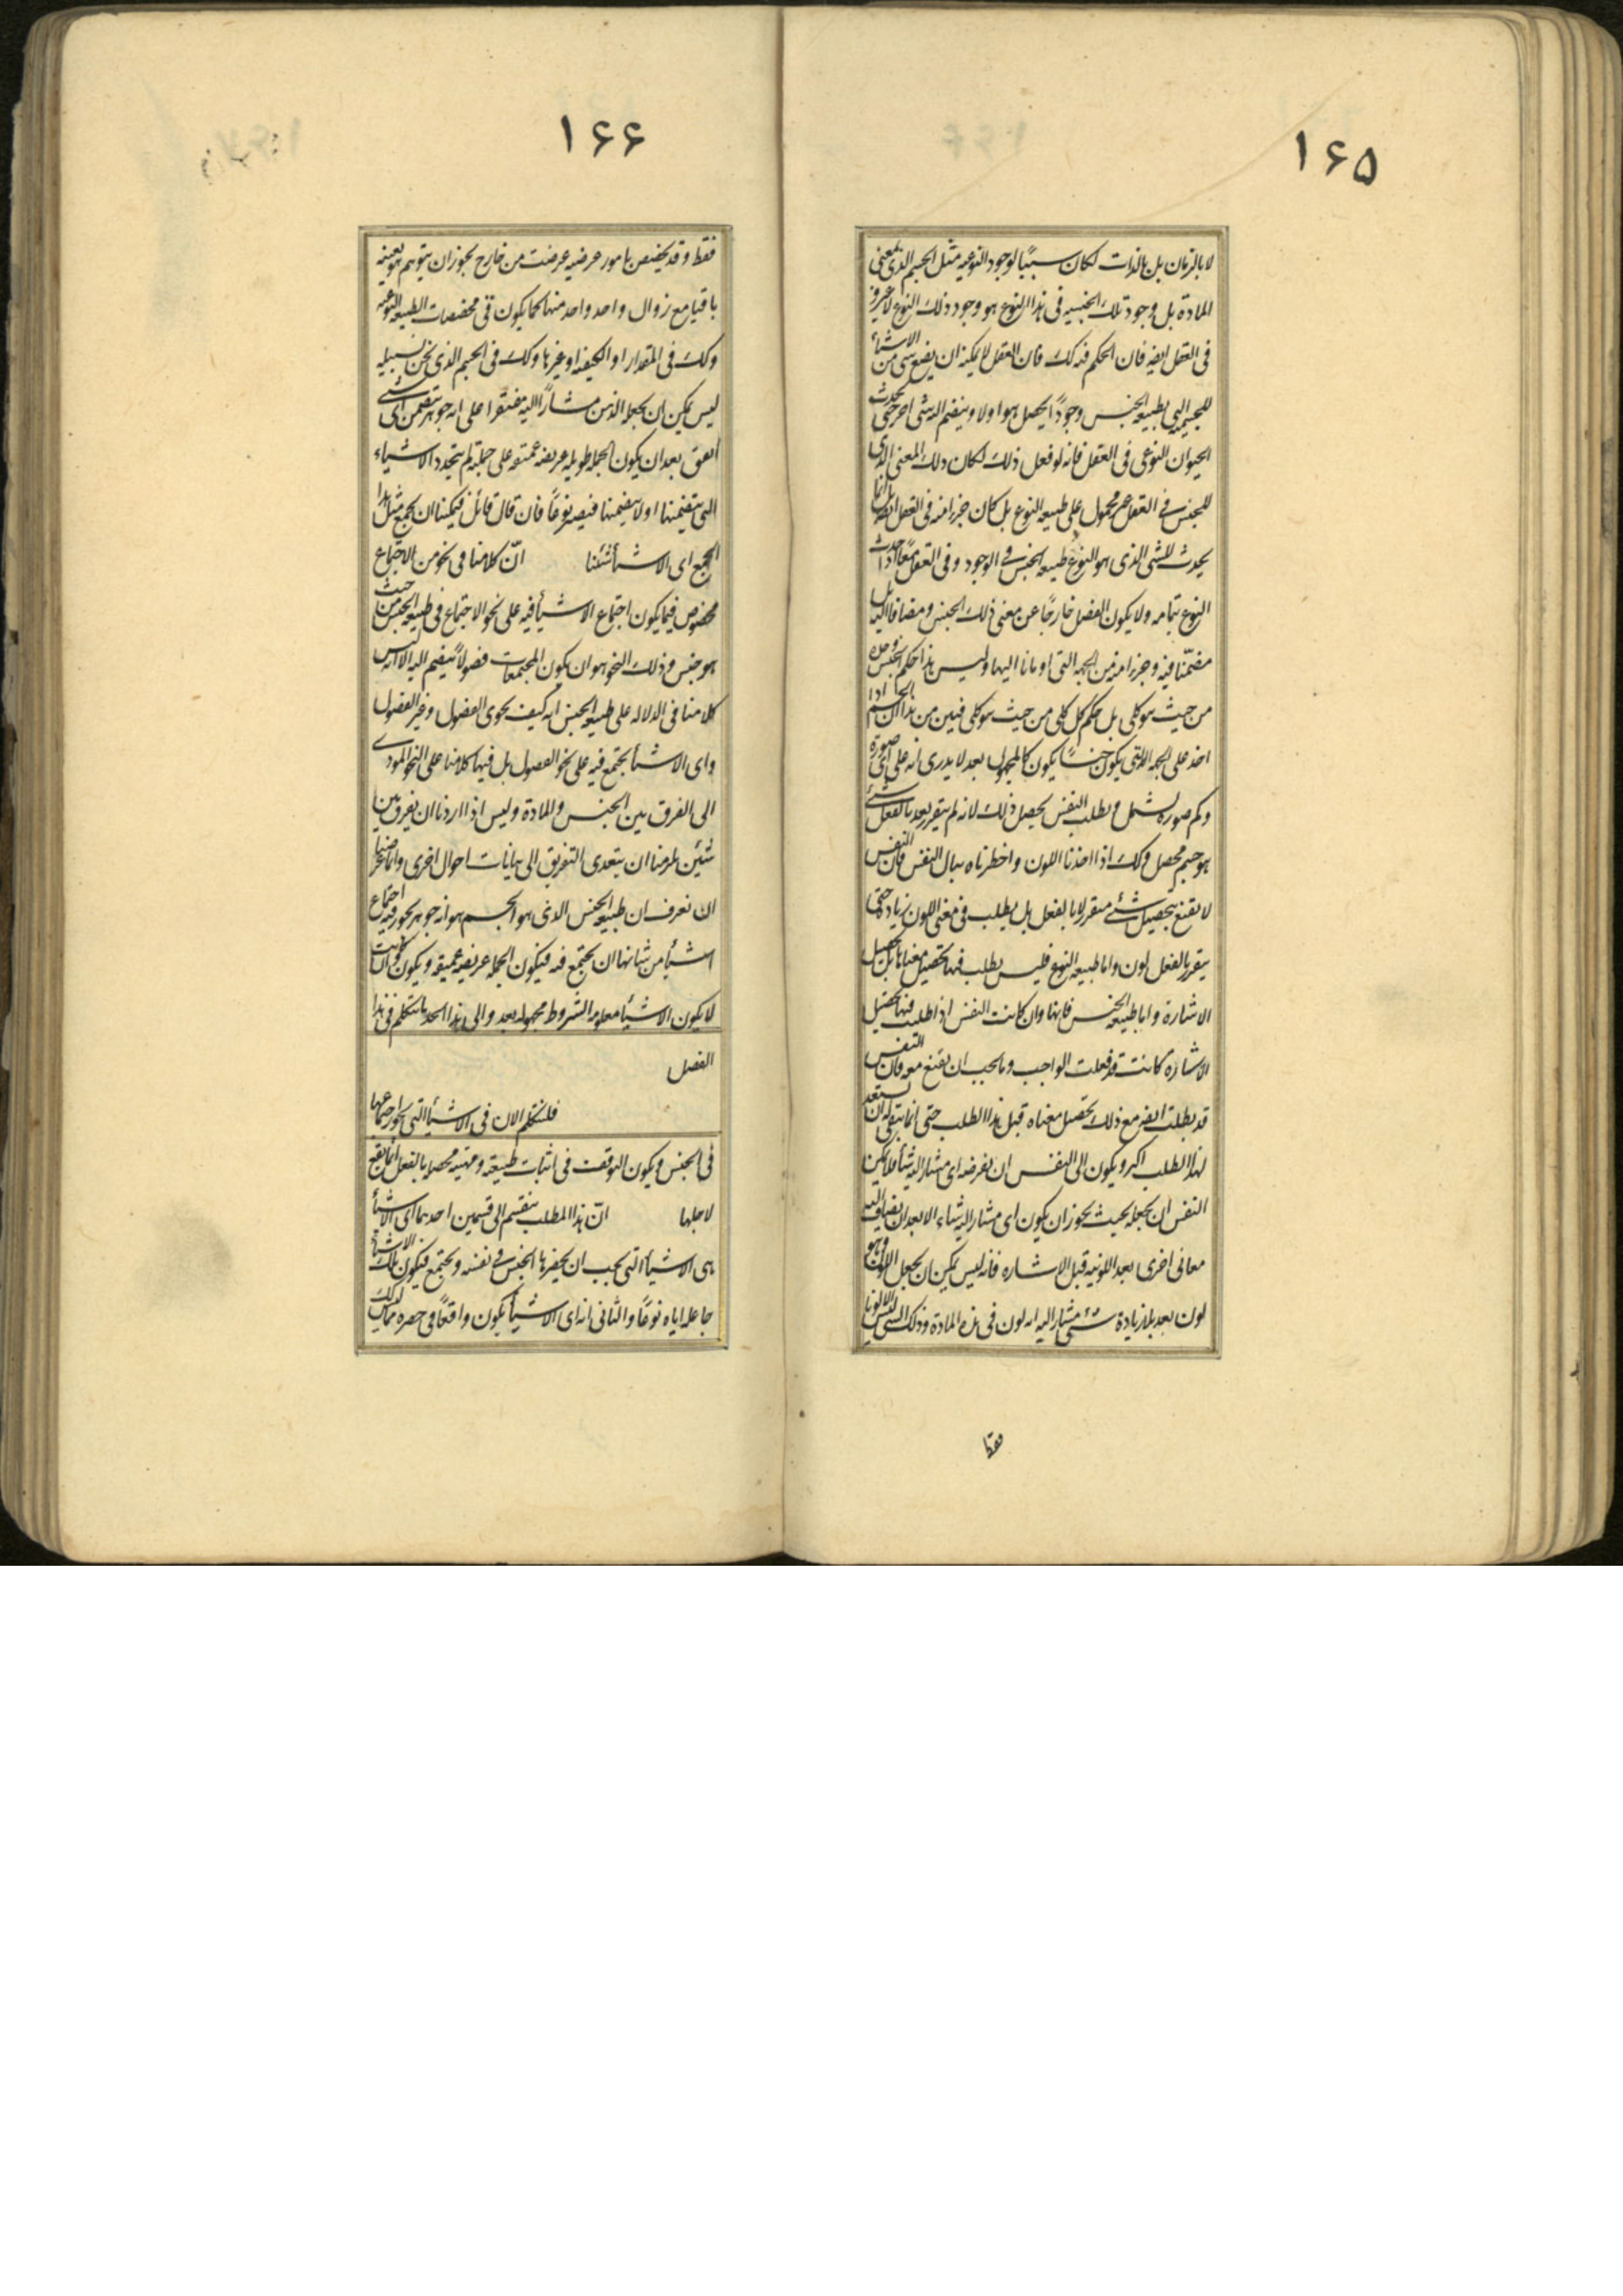 ۱۶۵
لا بالزمان بل بالذات لكان سببًا لوجود النوعیه مثل الجسم الذی بمعنی
المادة بل وجود تلك الجنسیه فی هذا النوع هو وجود ذلك النوع لا غیر و
فی العقل ایضه فان الحكم فیه كك فان العقل لا یمكنه ان یضع فی شی من الاشیأ
للجسمیه التی بطبیعه الجنس وجودًا یحصل هو اولا و ینضم الیه شی اخر حتی یحدث
الحیوان النوعی فی العقل فانه لو فعل ذلك لكان ذلك المعنی الذی
للجنس فی العقل غیر محمول علی طبیعه النوع بل كان جزء امنه فی العقل ایضا بل انما
یحدث للشی الذی هو النوع طبیعه الجنس فی الوجود و فی العقل معًا اذا حدث
النوع بتمامه ولا یكون الفصل خارجًا عن معنی ذلك الجنس و مضافا الیه بل
مضمّنا فیه و جزء امنه من الجهه التی اومانا الیها و لیس هذا حكم الجنس وحده
من حیث هو كلی بل حكم كل كلی من حیث هو كلی فبین من هذا ان الجسم اذا
اخذ علی الجهه التی یكون جنسًا یكون كالمجهول بعد لا یدری انه علی ای صورة
وكم صورة یشمل و یطلب النفس تحصیل ذلك لانه لم یتقرر بعد بالفعل شئ
هو جسم محصل وكك اذا اخذنا اللون و اخطرناه ببال النفس فان النفس
لا یقنع بتحصیل شئ متقرر لا بالفعل بل یطلب فی معنی اللون زیادة حتی
یتقرر بالفعل لون و اما طبیعه النوع فلیس یطلب فیها تحصیل معناها بل تحصیل
الاشارة و اما طبیعه الجنس فانها و ان كانت النفس اذا طلبت فیها تحصیل
الاشارة كانت قد فعلت الواجب و ما یجب ان یقنع معه فان النفس
قد یطلب ایضه مع ذلك تحصیل معناه قبل هذا الطلب حتی انما یبقی له ان یستعد
لهذا الطلب اكبر و یكون الی النفس ان یفرضه ای مشار الیه شأ فلا یمكن
النفس ان یجعله بحیث یجوز ان یكون ای مشار الیه شاء الا بعد ان یضاف الیه
معانی اخری بعد اللونیه قبل الاشاره فانه لیس یمكن ان یجعل اللون و هو
لون بعد بلا زیادة شئ مشار الیه انه لون فی هذه المادة و ذلك الشی لیس الا لونا
فقط
۱۶۶
فقط و قد یخصص بامور عرضیه عرضت من خارج یجوز ان یتوهم هو بعینه
باقیا مع زوال واحد واحد منها كما یكون فی مخصصات الطبیعه النوعیه
و كك فی المقدار او الكیفیه او غیرها و كك فی الجسم الذی نحن بسبیله
لیس یمكن ان یجعله الذهن مشارًا الیه مقتصرا علی انه جوهر یتضمن ای شئ
اتفق بعد ان یكون الجمله طویله عریضه عمیقه علی جملة لم یتحدد الاشیاء
التی یتضمنها او لا یتضمنها فیصیر نوعًا فان قال قائل فیمكننا ان نجمع مثل هذا
الجمع ای الاشیأ شئنا انّ كلامنا فی نحو من الاجتماع
مخصوص فیما یكون اجتماع الاشیأ فیه علی نحو الاجتماع فی طبیعه الجنس من حیث
هو جنس و ذلك النحو هو ان یكون المجتمعات فصولا ینضم الیه الا انه لیس
كلامنا فی الدلاله علی طبیعه الجنس انه كیف یحوی الفصول و غیر الفصول
و ای الاشیأ یجتمع فیه علی نحو الفصول بل فیها كلامنا علی النحو المودی
الی الفرق بین الجنس و المادة و لیس اذا اردنا ان یفرق بین
شئین یلزمنا ان یتعدی التفریق الی بیانات احوال اخری و انما غرضنا
ان نعرف ان طبیعه الجنس الذی هو الجسم هو انه جوهر یجوز فیه اجتماع
اشیأ من شانها ان یجتمع فیه فیكون الجمله عریضه عمیقه و یكون و ان كانت
لا یكون الاشیأ معلومه الشروط مجهوله بعد و الی هذا الحد ما نتكلم فی هذا
الفصل
فلنتكلم الان فی الاشیأ التی یجوز اجتماعها
فی الجنس و یكون التوقف فی اثبات طبیعته و مهیته محصلا بالفعل انما یقع
لاجلها انّ هذا المطلب ینقسم الی قسمین احدیهما ای الاشیأ
هی الاشیأ التی یجب ان یحضرها الجنس فی نفسه و یجتمع فیكون تلك الاشیأ
جاعله ایاه نوعًا و الثانی انه ای الاشیأ یكون واقعًا فی حصره مما لیس كذلك